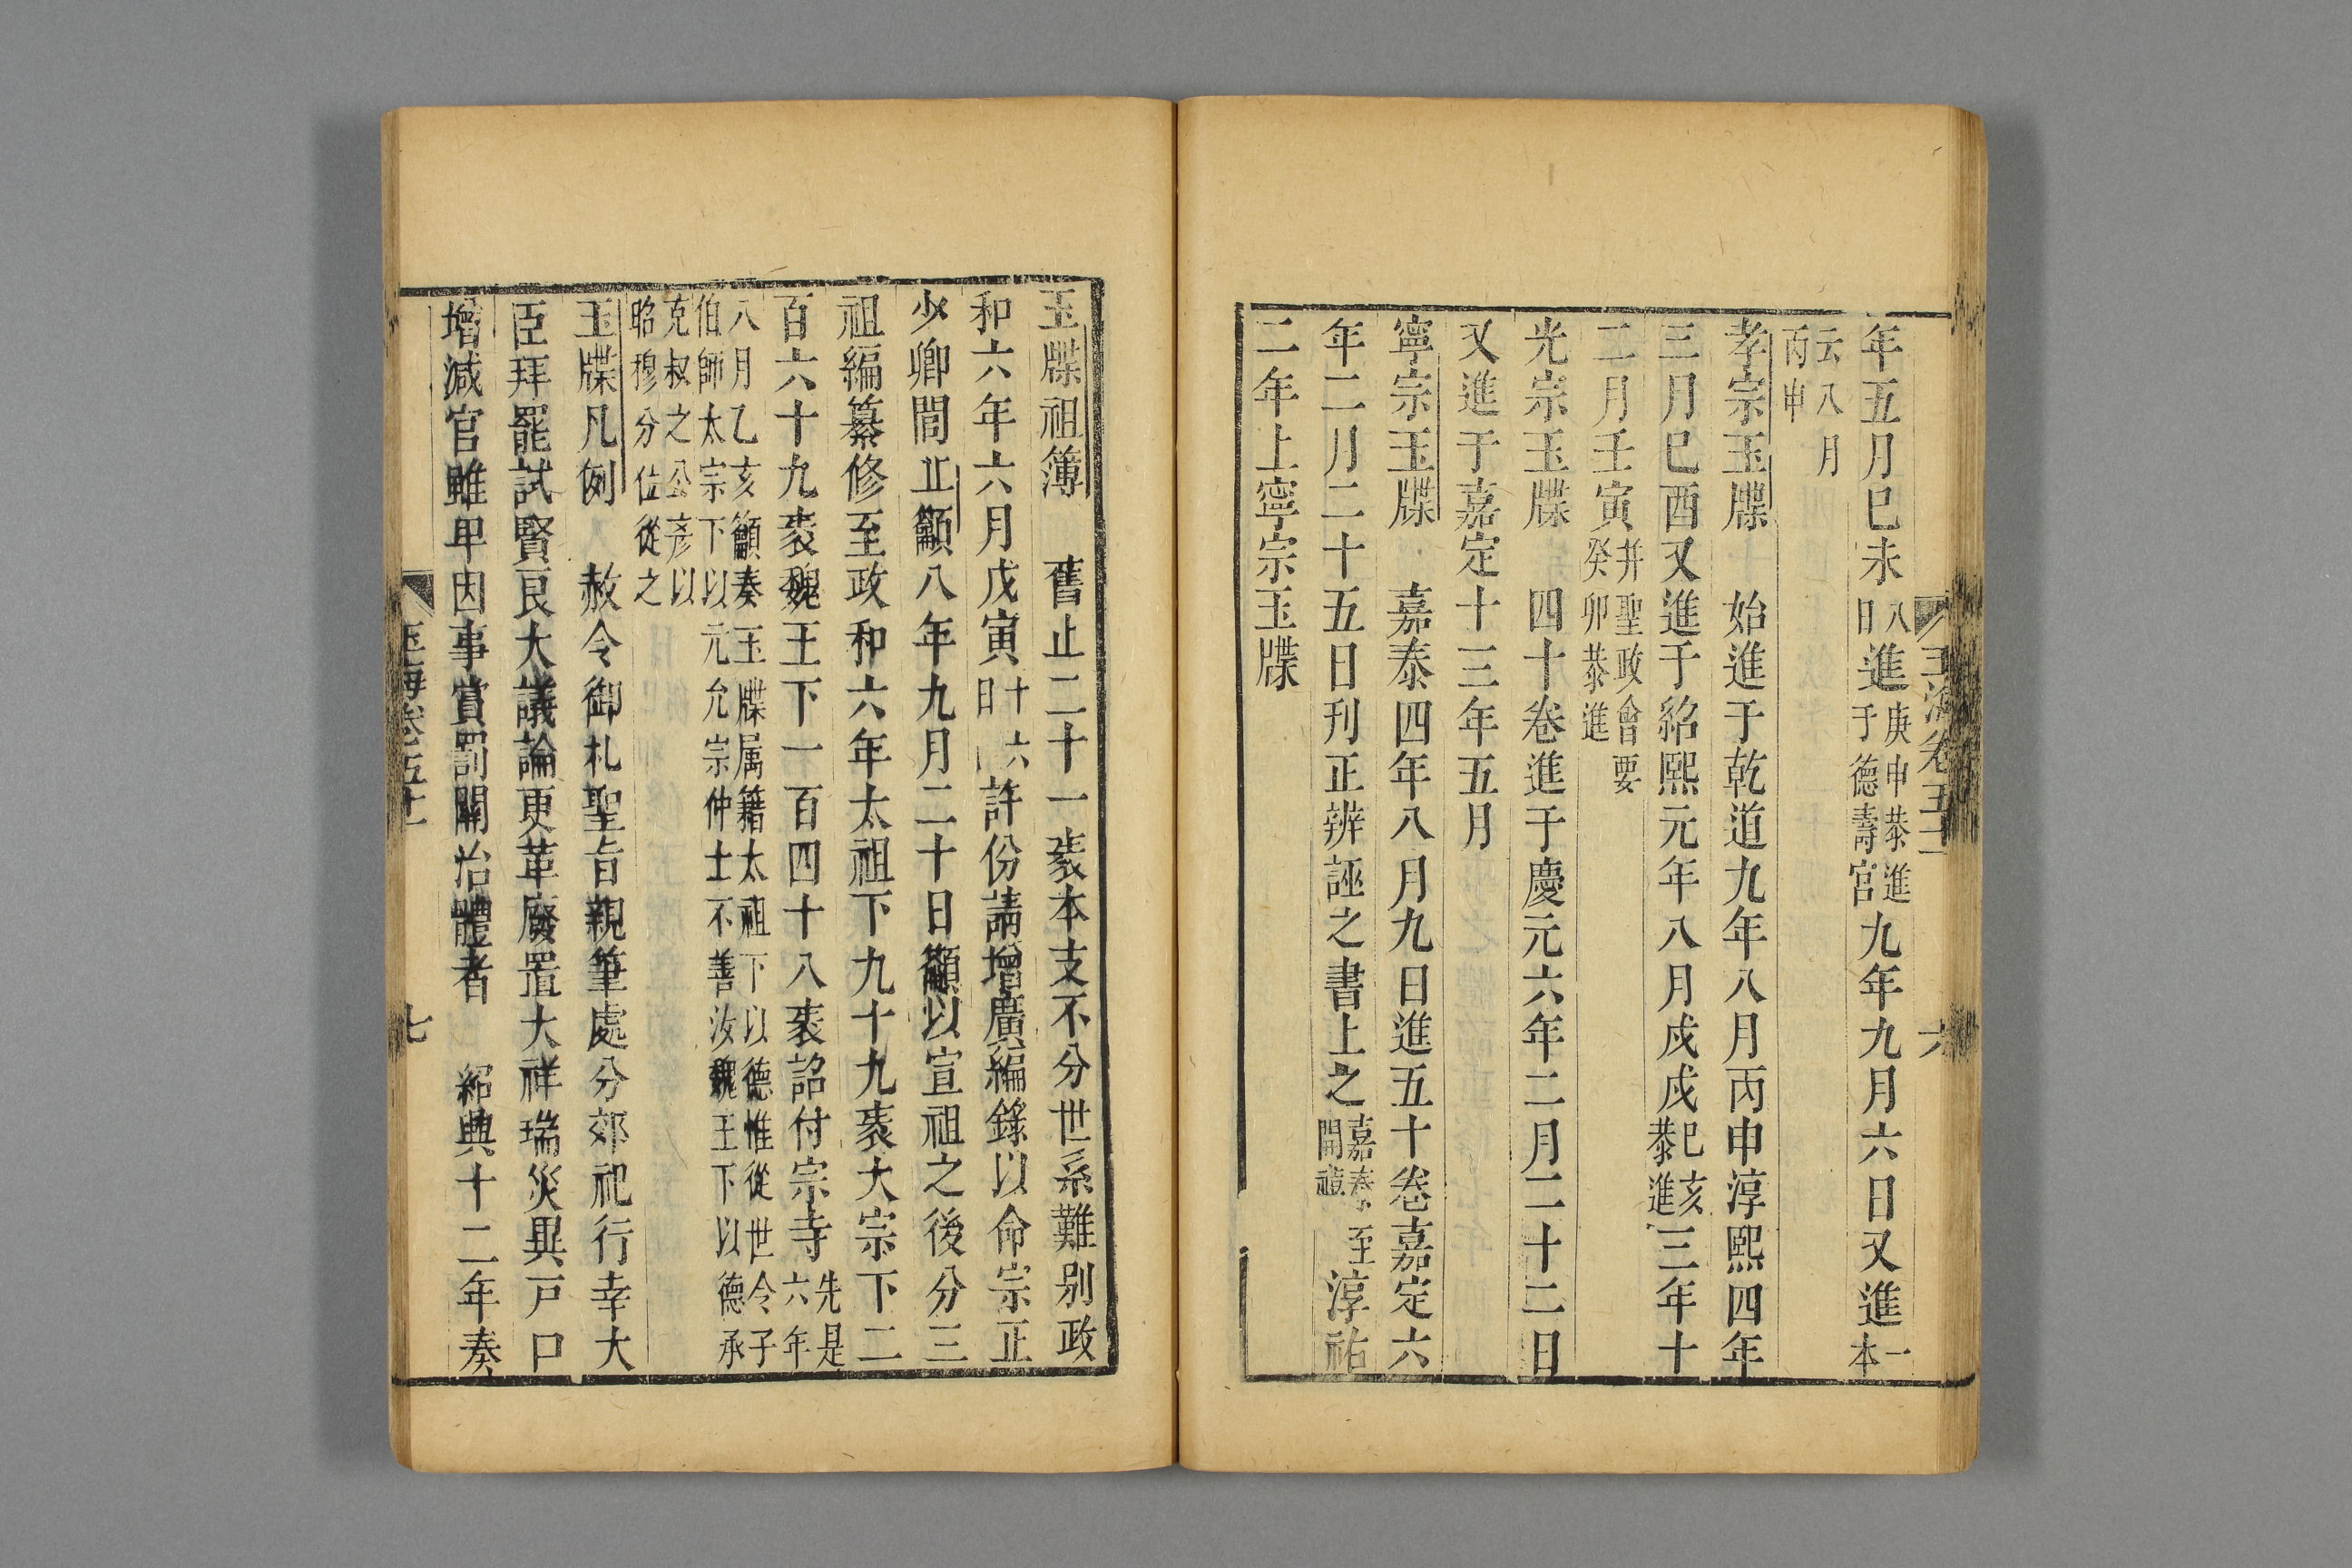 年五月巳未八日進庚申恭進于德壽宮九年九月六日又進一本
云八月丙申
孝宗玉牒　始進于乾道九年八月丙申淳熙四年
三月巳酉又進于紹熙元年八月戍戍巳亥恭進三年十
二月壬寅并聖政會要癸卯恭進
光宗玉牒　四十卷進于慶元六年二月二十二日
又進于嘉定十三年五月
寧宗玉牒　嘉泰四年八月九日進五十卷嘉定六
年二月二十五日刋正辨誣之書上之嘉泰至開禧淳祐
二年上寧宗玉牒
玉海卷五十一　六
玉牒祖簿　舊止二十一袠本支不分世系難别政
和六年六月戊寅十六日許份請增廣編錄以命宗正
少卿閭丘籲八年九月二十日籲以宣祖之後分三
祖編纂修至政和六年太祖下九十九袠大宗下二
百六十九袠魏王下一百四十八袠詔付宗寺先是六年
八月乙亥籲奏玉牒属籍太祖下以德惟從世令子
伯師太宗下以元允宗仲士不善汝魏王下以德承
克叔之公彥以
昭穆分位從之
玉牒凡例　赦令御札聖旨親筆處分郊祀行幸大
臣拜罷試賢良大議論更革廢置大祥瑞災異戸口
增減官雖卑因事賞罰關治體者　紹興十二年奏
玉海卷五十一　七